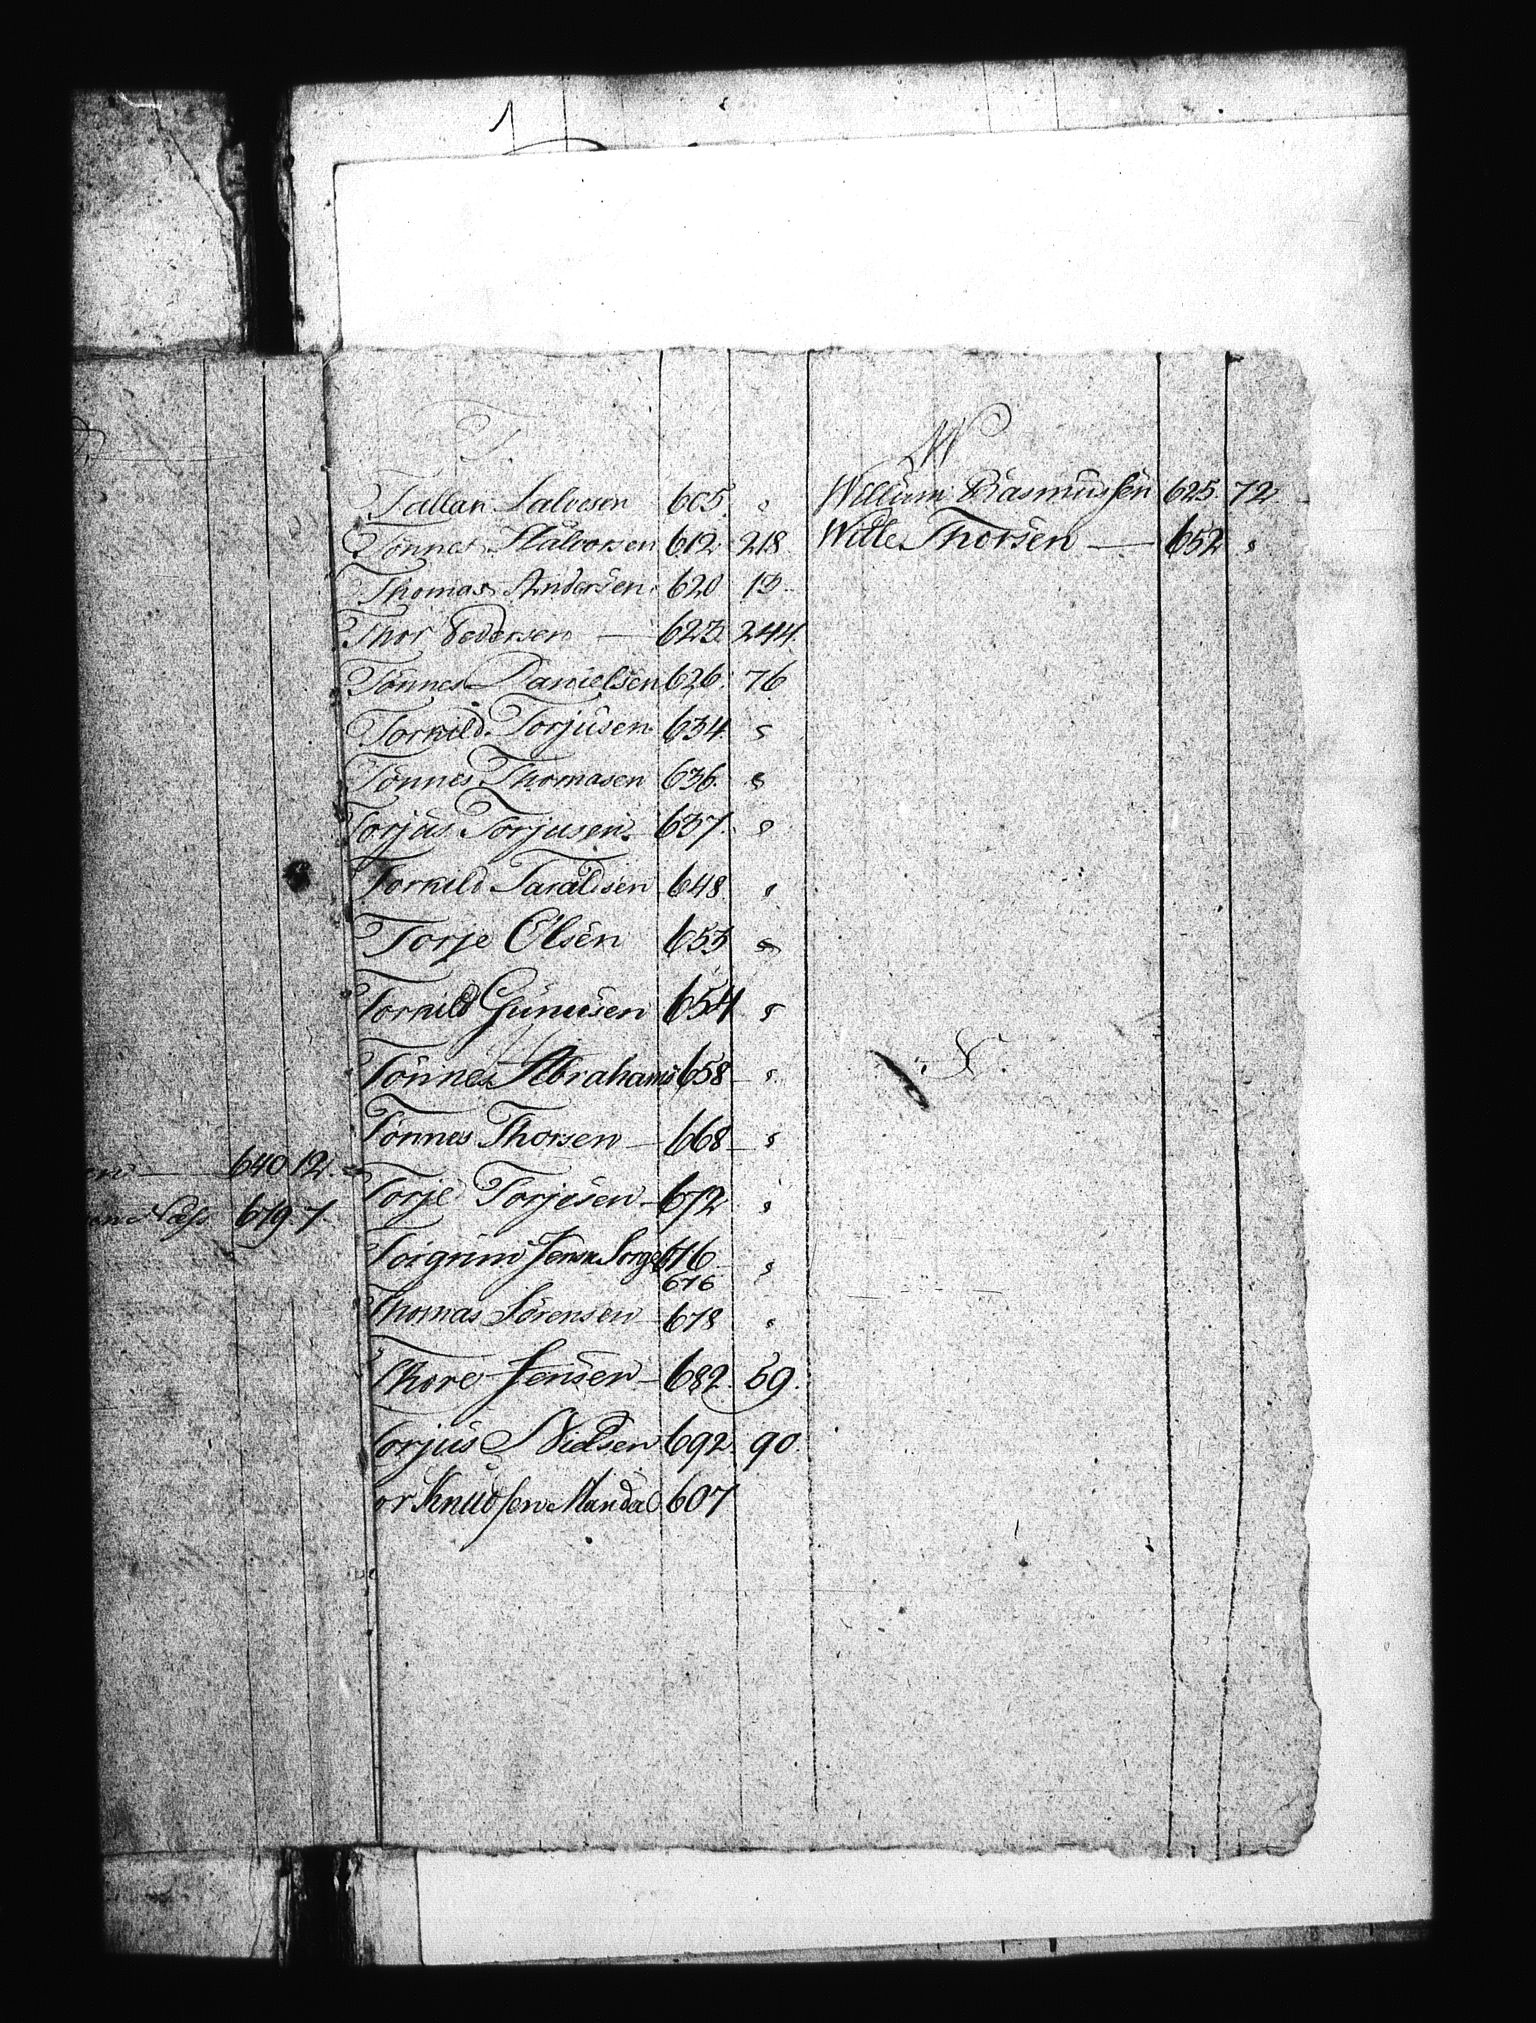 T.
Tallan Salvesen 605 "
Tönnes Halvorsen 612 218
Thomas Andersen 620 13
Thor Pedersen — 623 244
Tönnes Danielsen 626 76
Torkild Torjusen 634 "
Tönnes Thomasen 636 "
Torjus Torjusen 637 "
Torkild Taraldsen 648 "
Torje Olsen 653 "
Torkild Gunusen 654 "
Tönnes Abrahams 658 "
Tönnes Thorsen — 668 "
Torje Torjesen — 672 "
Torgrim Jensen 676 "
676
Thomas Sörensen — 678 "
Thore Jensen — 682 59
Torjus Nielsen 692 90
or Knudsen Mandal 607
W
Willum Rasmussen 625 72
Wille Thorsen — 652 "
640 12
Næss 679 7